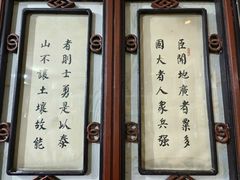 臣聞地廣者粟多
國大者人衆兵强
者則士勇是以泰
山不讓土壤故能